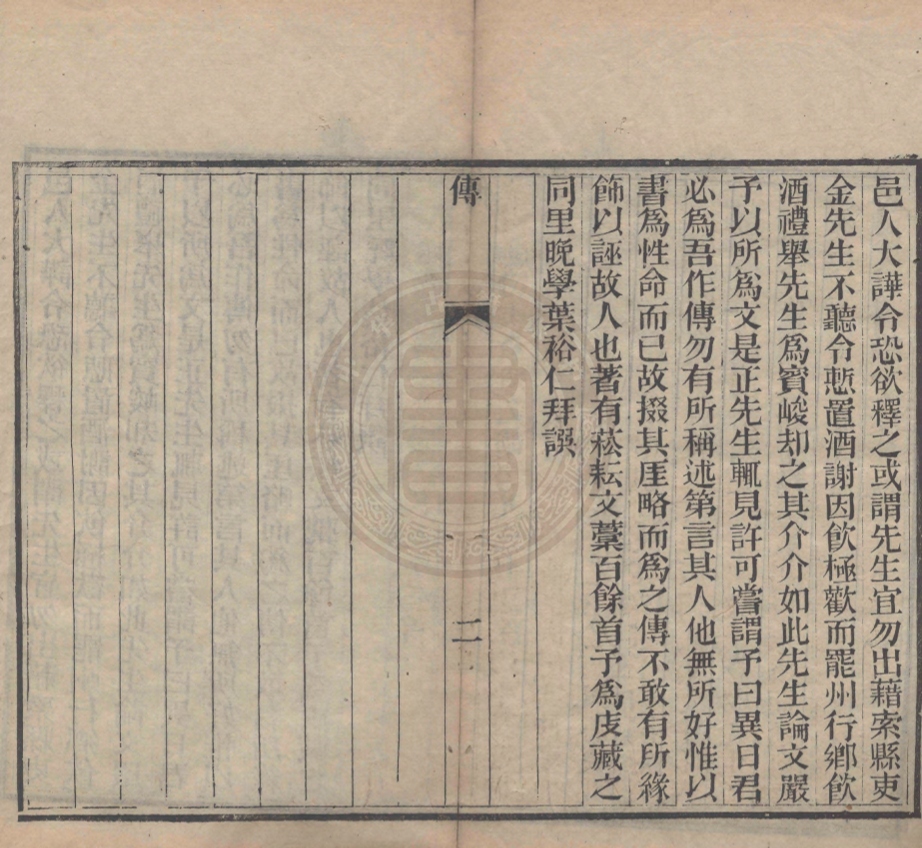 邑人大譁令恐欲釋之或謂先生宜勿出藉索縣吏
金先生不聽令慙置酒謝因飲極歡而罷州行鄉飲
酒禮舉先生爲賓峻却之其介介如此先生論文嚴
予以所爲文是正先生輒見許可嘗謂予曰異日君
必爲吾作傳勿有所稱述第言其人他無所好惟以
書爲性命而已故掇其厓略而爲之傳不敢有所緣
飾以誣故人也著有菘耘文藁百餘首予爲庋藏之
同里晚學葉裕仁拜譔
傳
二